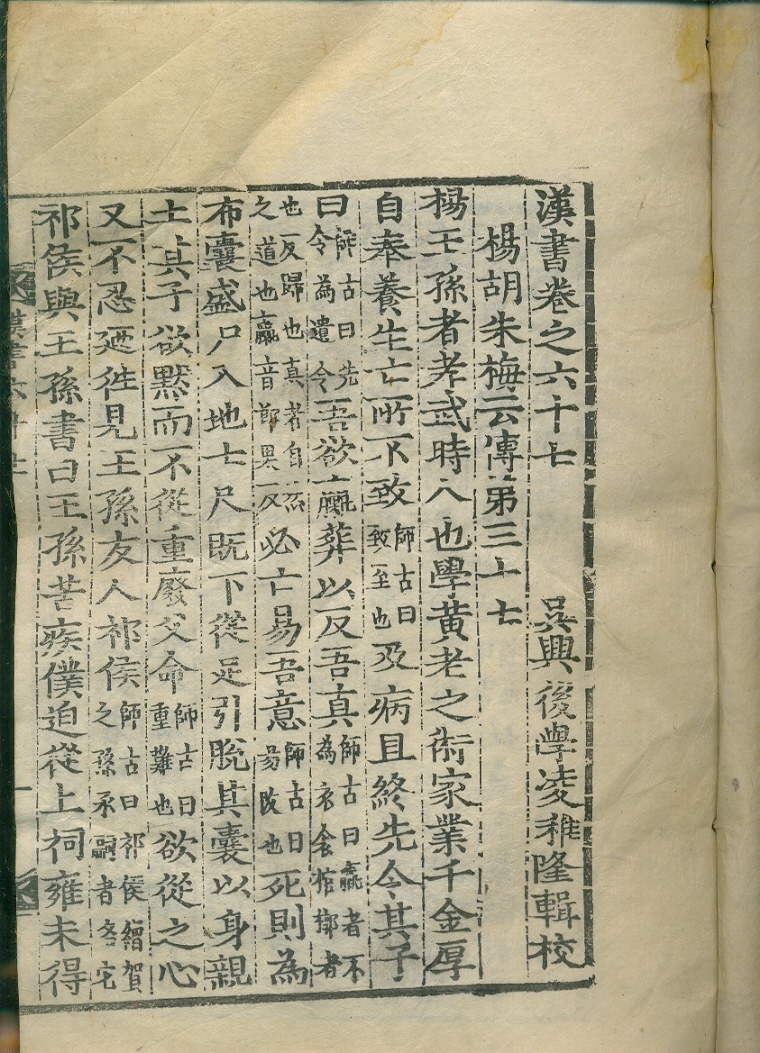 漢書卷之六十七 吳興後學凌稚隆輯校
楊胡朱梅云傳第三十七
楊王孫者孝武時人也學黃老之術家業千金厚
自奉養生亡所不致師古曰致至也及病且終先令其子
曰師古曰先令為遺令吾欲臝葬以反吾真師古曰臝者不為衣衾棺槨者
也反歸也真者自然之道也臝音郎果反必亡易吾意師古曰易改也死則為
布囊盛尸入地七尺既下從足引脫其囊以身親
土其子欲默而不從重廢父命師古曰重難也欲從之心
又不忍乃往見王孫友人祁侯師古曰祁侯繒賀之孫承嗣者名它
祁侯與王孫書曰王孫苦疾僕迫從上祠雍未得
漢書六十七